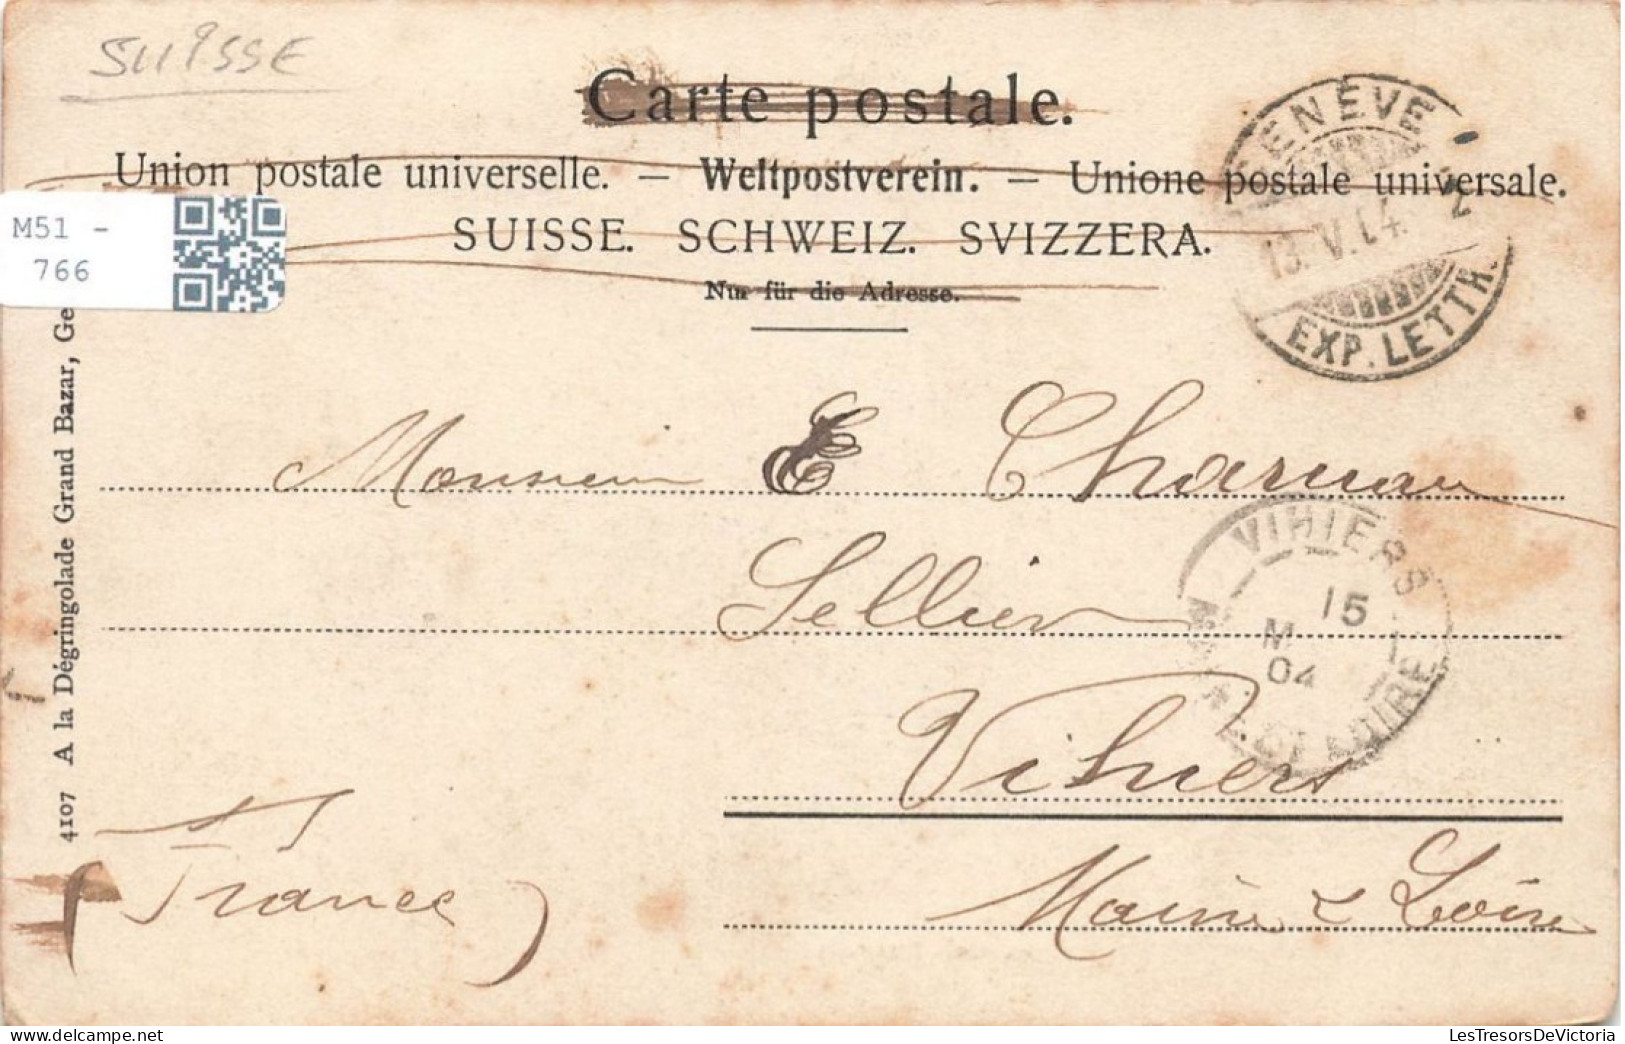 SUISSE
Carte postale.
Union postale universelle. — Weltpostverein. — Unione postale universale.
SUISSE. SCHWEIZ. SVIZZERA.
Nur für die Adresse.
GENÈVE
13. V. 04.
EXP. LETTR.
M51 -
766
4107 A la Dégringolade Grand Bazar, Ge
Monsieur E Charuau
Sellier
VIHIERS
15
M
04
MAINE ET LOIRE
Vihiers
Maine & Loire
(France)
LesTresorsDeVictoria
© www.delcampe.net